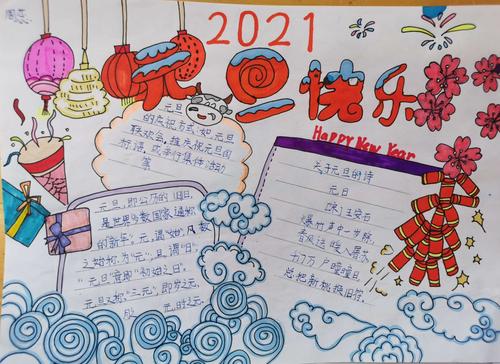 2021
元旦快乐
Happy New Year
元旦
的庆祝方式: 如元旦
联欢会, 挂庆祝元旦的
标语, 或举行集体活动
等
元旦, 即公历的1月1日,
是世界多数国家通称
的新年。元, 谓"始", 凡数
之始称为"元"; 旦, 谓"日";
"元旦"意即"初始之日"。
元旦又称"三元", 即岁之元,
月之元, 时之元。
关于元旦的诗
元日
[宋] 王安石
爆竹声中一岁除,
春风送暖入屠苏
千门万户曈曈日
总把新桃换旧符。